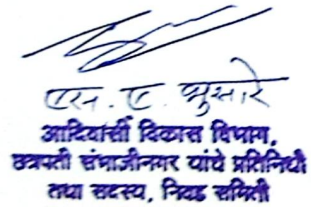 एस. ए. भुसारे
आदिवासी विकास विभाग,
छत्रपती संभाजीनगर यांचे प्रतिनिधी
तथा सदस्य, निवड समिती